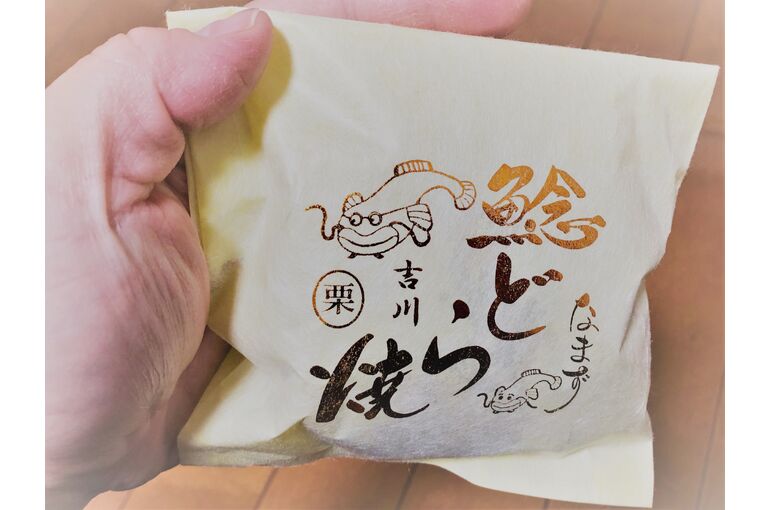 鯰
どら
焼
なまず
吉川
栗